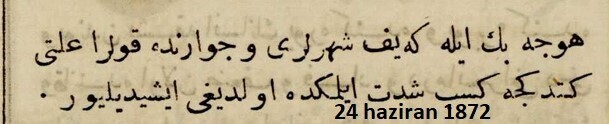 هوجه بك ایله كه‌یف شهرلری و جوارنده قولرا علتی
كتدكجه كسب شدت ایلمكده اولدیغی ایشیدیلیور .
24 haziran 1872